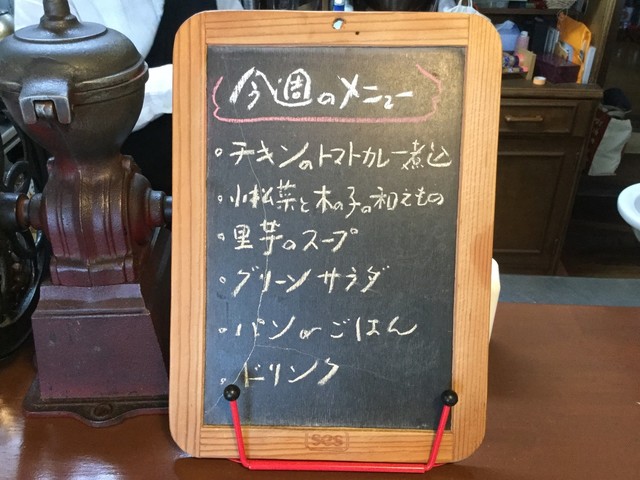 今週のメニュー
・チキンのトマトカレー煮込
・小松菜と木の子の和えもの
・里芋のスープ
・グリーンサラダ
・パンorごはん
・ドリンク
SGS